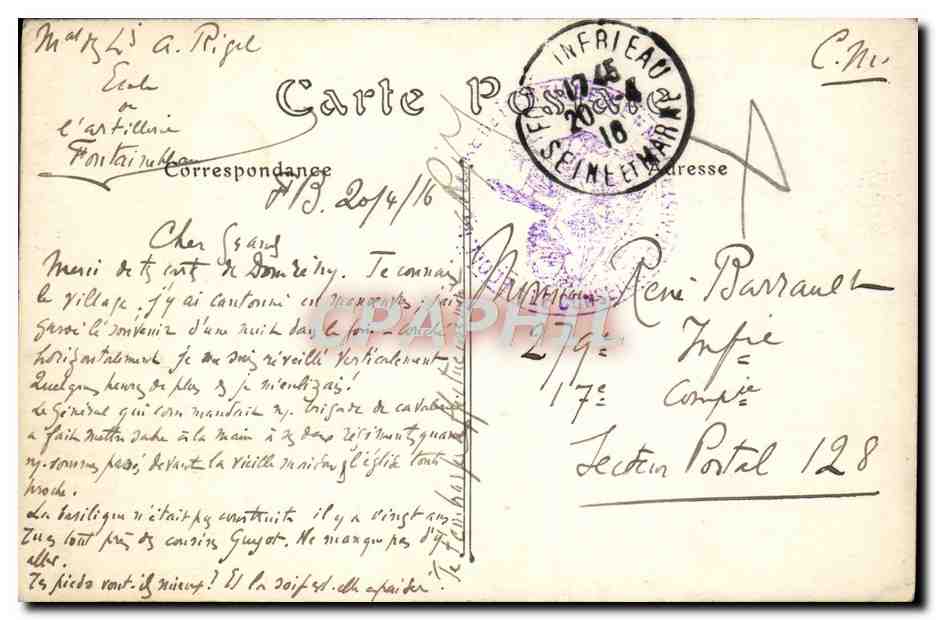 Mal des Lis A. Rigel
Ecole
de
l'artillerie
Fontainebleau
C. M.
Carte Postale
Correspondance
Adresse
FONTAINEBLEAU
17 45
20 -4
16
SEINE ET MARNE
F/B. 20/4/16
Cher Grand
Merci de ta carte de Domrémy. Je connais
le village, j'y ai cantonné en manoeuvres, j'ai
gardé le souvenir d'une nuit dans le foin. Couché
horizontalement je me suis réveillé verticalement
Quelques heures de plus et je m'enlizais!
Le Général qui commandait ns. brigade de cavalerie
a fait mettre sabre à la main à ses deux régiments quand
ns. sommes passés devant la vieille maison et l'église toute
proche.
La basilique n'était pas construite il y a vingt ans
Tu es tout près des cousins Guyot. Ne manque pas d'y
aller.
Tes pieds vont-ils mieux? Et la soif est-elle apaisée?
Je t'embrasse affectueusement
Monsieur René Barrault
279e Infie
17e Compie
Secteur Postal 128
CPAPHIL